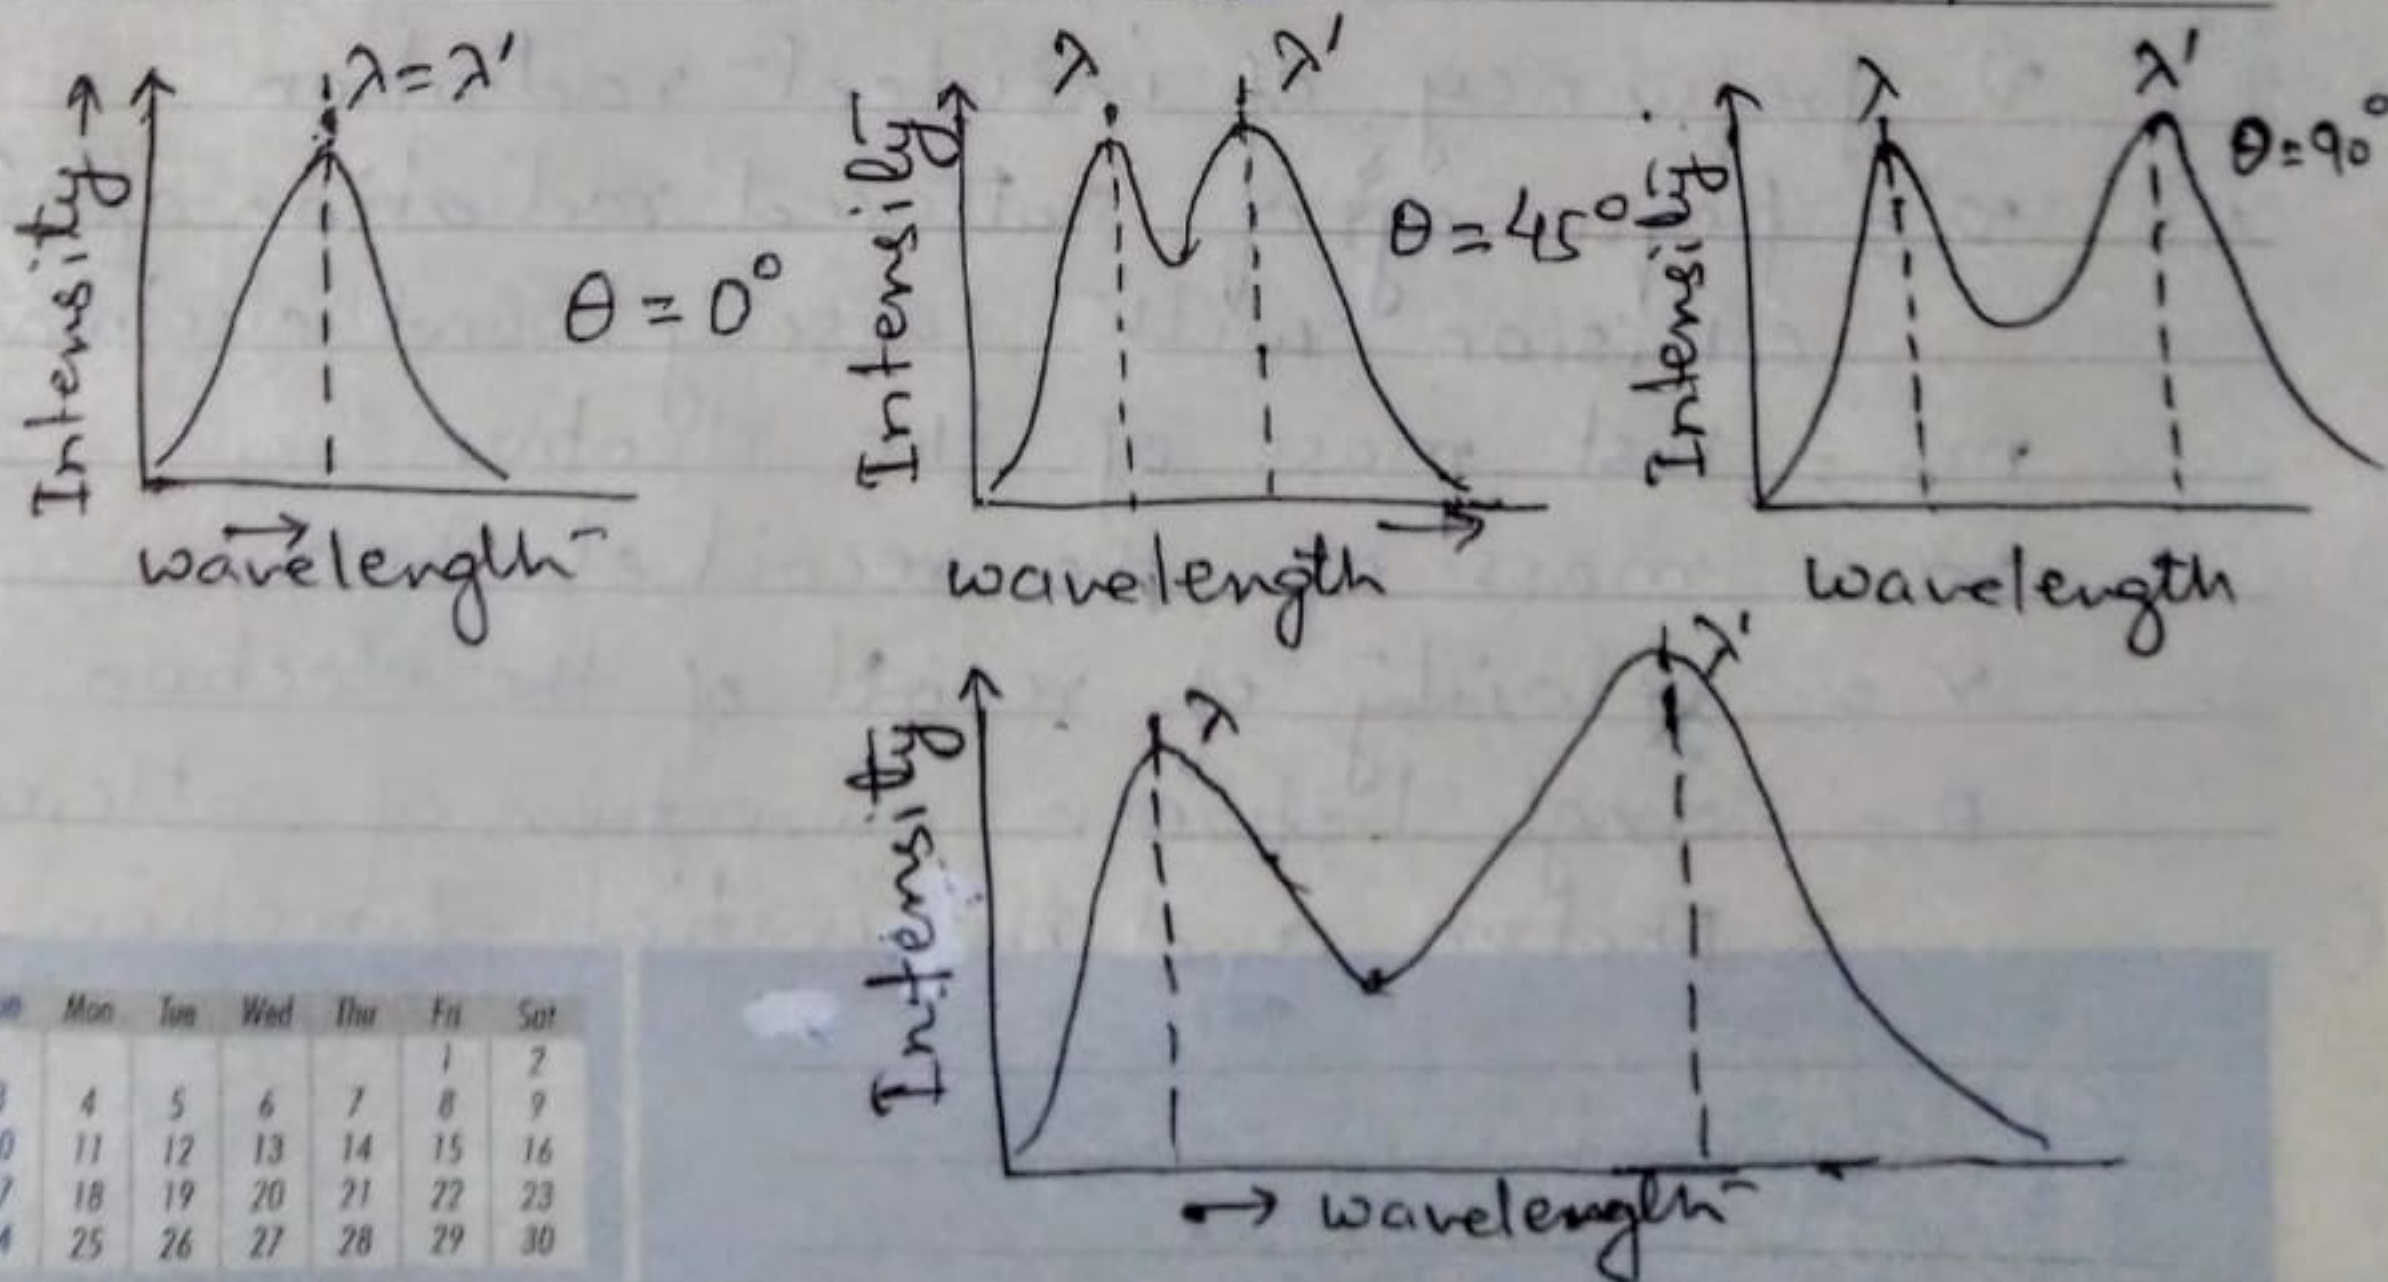 λ=λ'
Intensity →
θ = 0°
→
wavelength
λ
λ'
Intensity
θ = 45°
→
wavelength
λ
λ'
Intensity
θ = 90°
wavelength
λ
λ'
Intensity
→ wavelength
Mon Tue Wed Thu Fri Sat
1 2
4 5 6 7 8 9
11 12 13 14 15 16
18 19 20 21 22 23
25 26 27 28 29 30